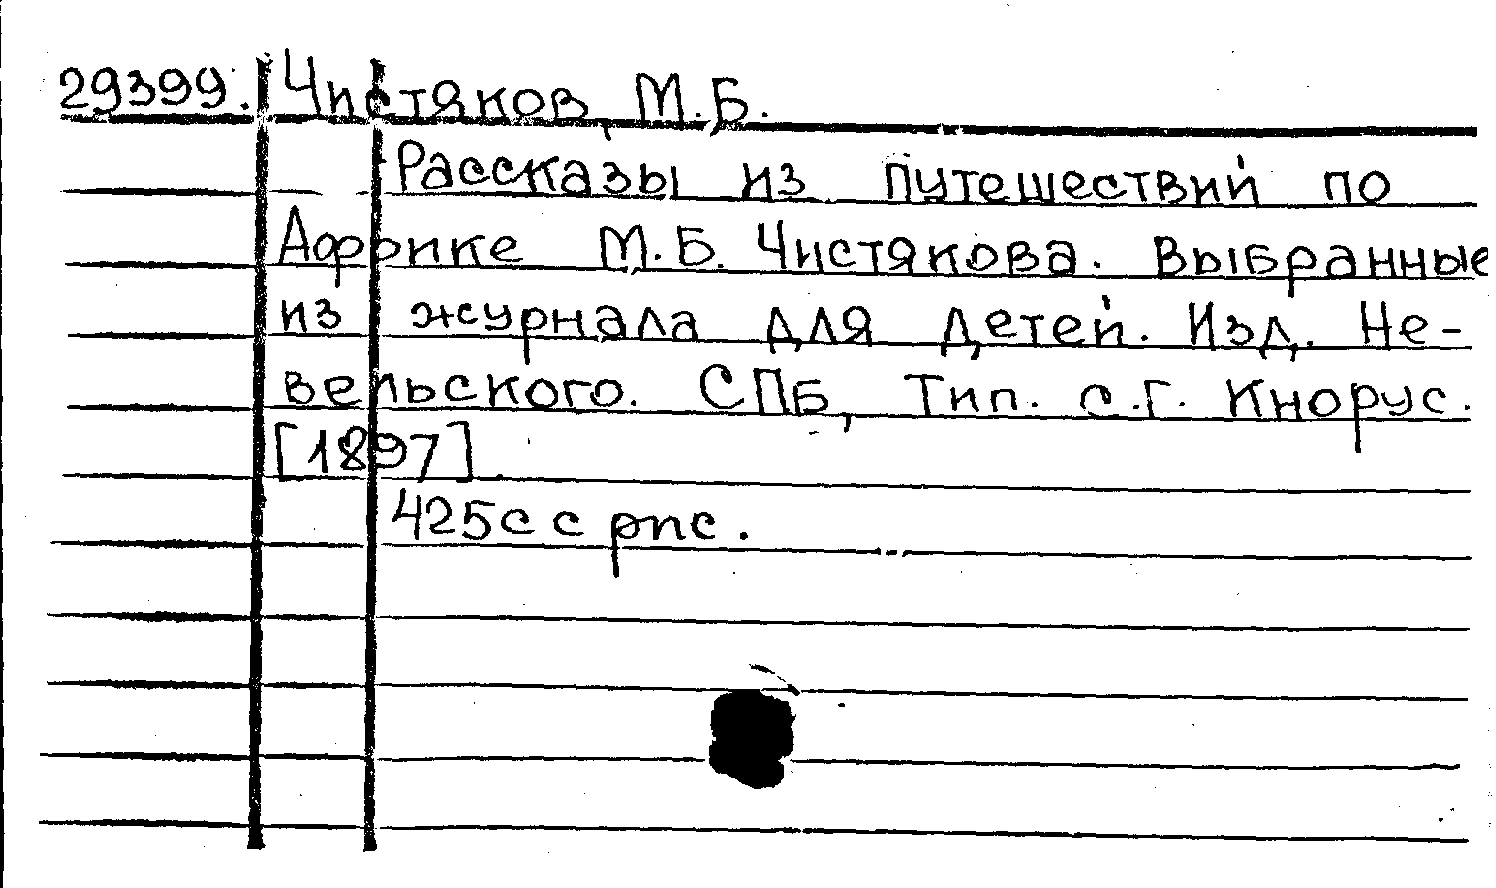 29399. Чистяков, М.Б.
Рассказы из путешествий по
Африке М.Б. Чистякова. Выбранные
из журнала для детей. Изд. Не-
вельского. СПБ, Тип. С.Г. Кнорус.
[1897].
425с с рис.